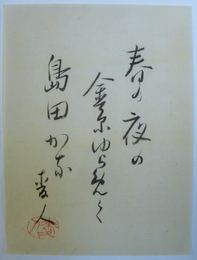 春の夜の
金糸ゆらめく
島田かな